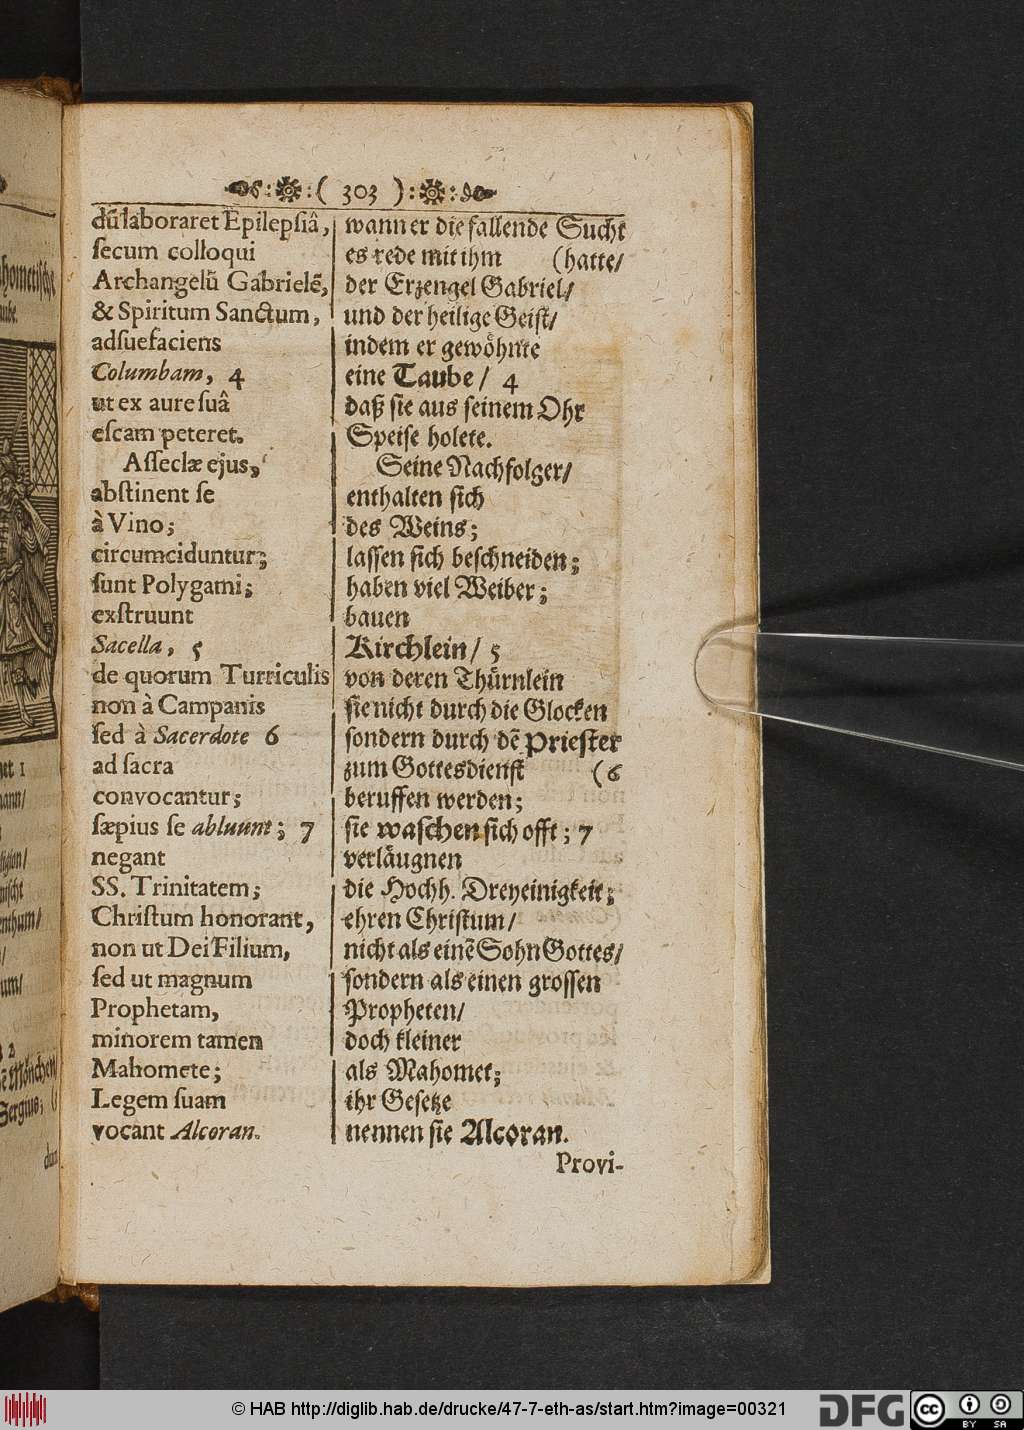 ( 303 )
dũ laboraret Epilepſiâ,
ſecum colloqui
Archangelũ Gabrielẽ,
& Spiritum Sanctum,
adſuefaciens
Columbam, 4
ut ex aure ſuâ
eſcam peteret.
Aſſeclæ ejus,
abſtinent ſe
à Vino;
circumciduntur;
ſunt Polygami;
exſtruunt
Sacella, 5
de quorum Turriculis
non à Campanis
ſed à Sacerdote 6
ad ſacra
convocantur;
ſæpius ſe abluunt; 7
negant
SS. Trinitatem;
Chriſtum honorant,
non ut Dei Filium,
ſed ut magnum
Prophetam,
minorem tamen
Mahomete;
Legem ſuam
vocant Alcoran.
wann er die fallende Sucht
es rede mit ihm (hatte/
der Erzengel Gabriel/
und der heilige Geiſt/
indem er gewöhnte
eine Taube / 4
daß ſie aus ſeinem Ohr
Speiſe holete.
Seine Nachfolger/
enthalten ſich
des Weins;
laſſen ſich beſchneiden;
haben viel Weiber;
bauen
Kirchlein / 5
von deren Thürnlein
ſie nicht durch die Glocken
ſondern durch dẽ Prieſter
zum Gottesdienſt (6
beruffen werden;
ſie waſchen ſich offt; 7
verläugnen
die Hochh. Dreyeinigkeit;
ehren Chriſtum/
nicht als einẽ Sohn Gottes/
ſondern als einen groſſen
Propheten/
doch kleiner
als Mahomet;
ihr Geſetze
nennen ſie Alcoran.
Provi-
© HAB http://diglib.hab.de/drucke/47-7-eth-as/start.htm?image=00321
DFG
cc BY SA